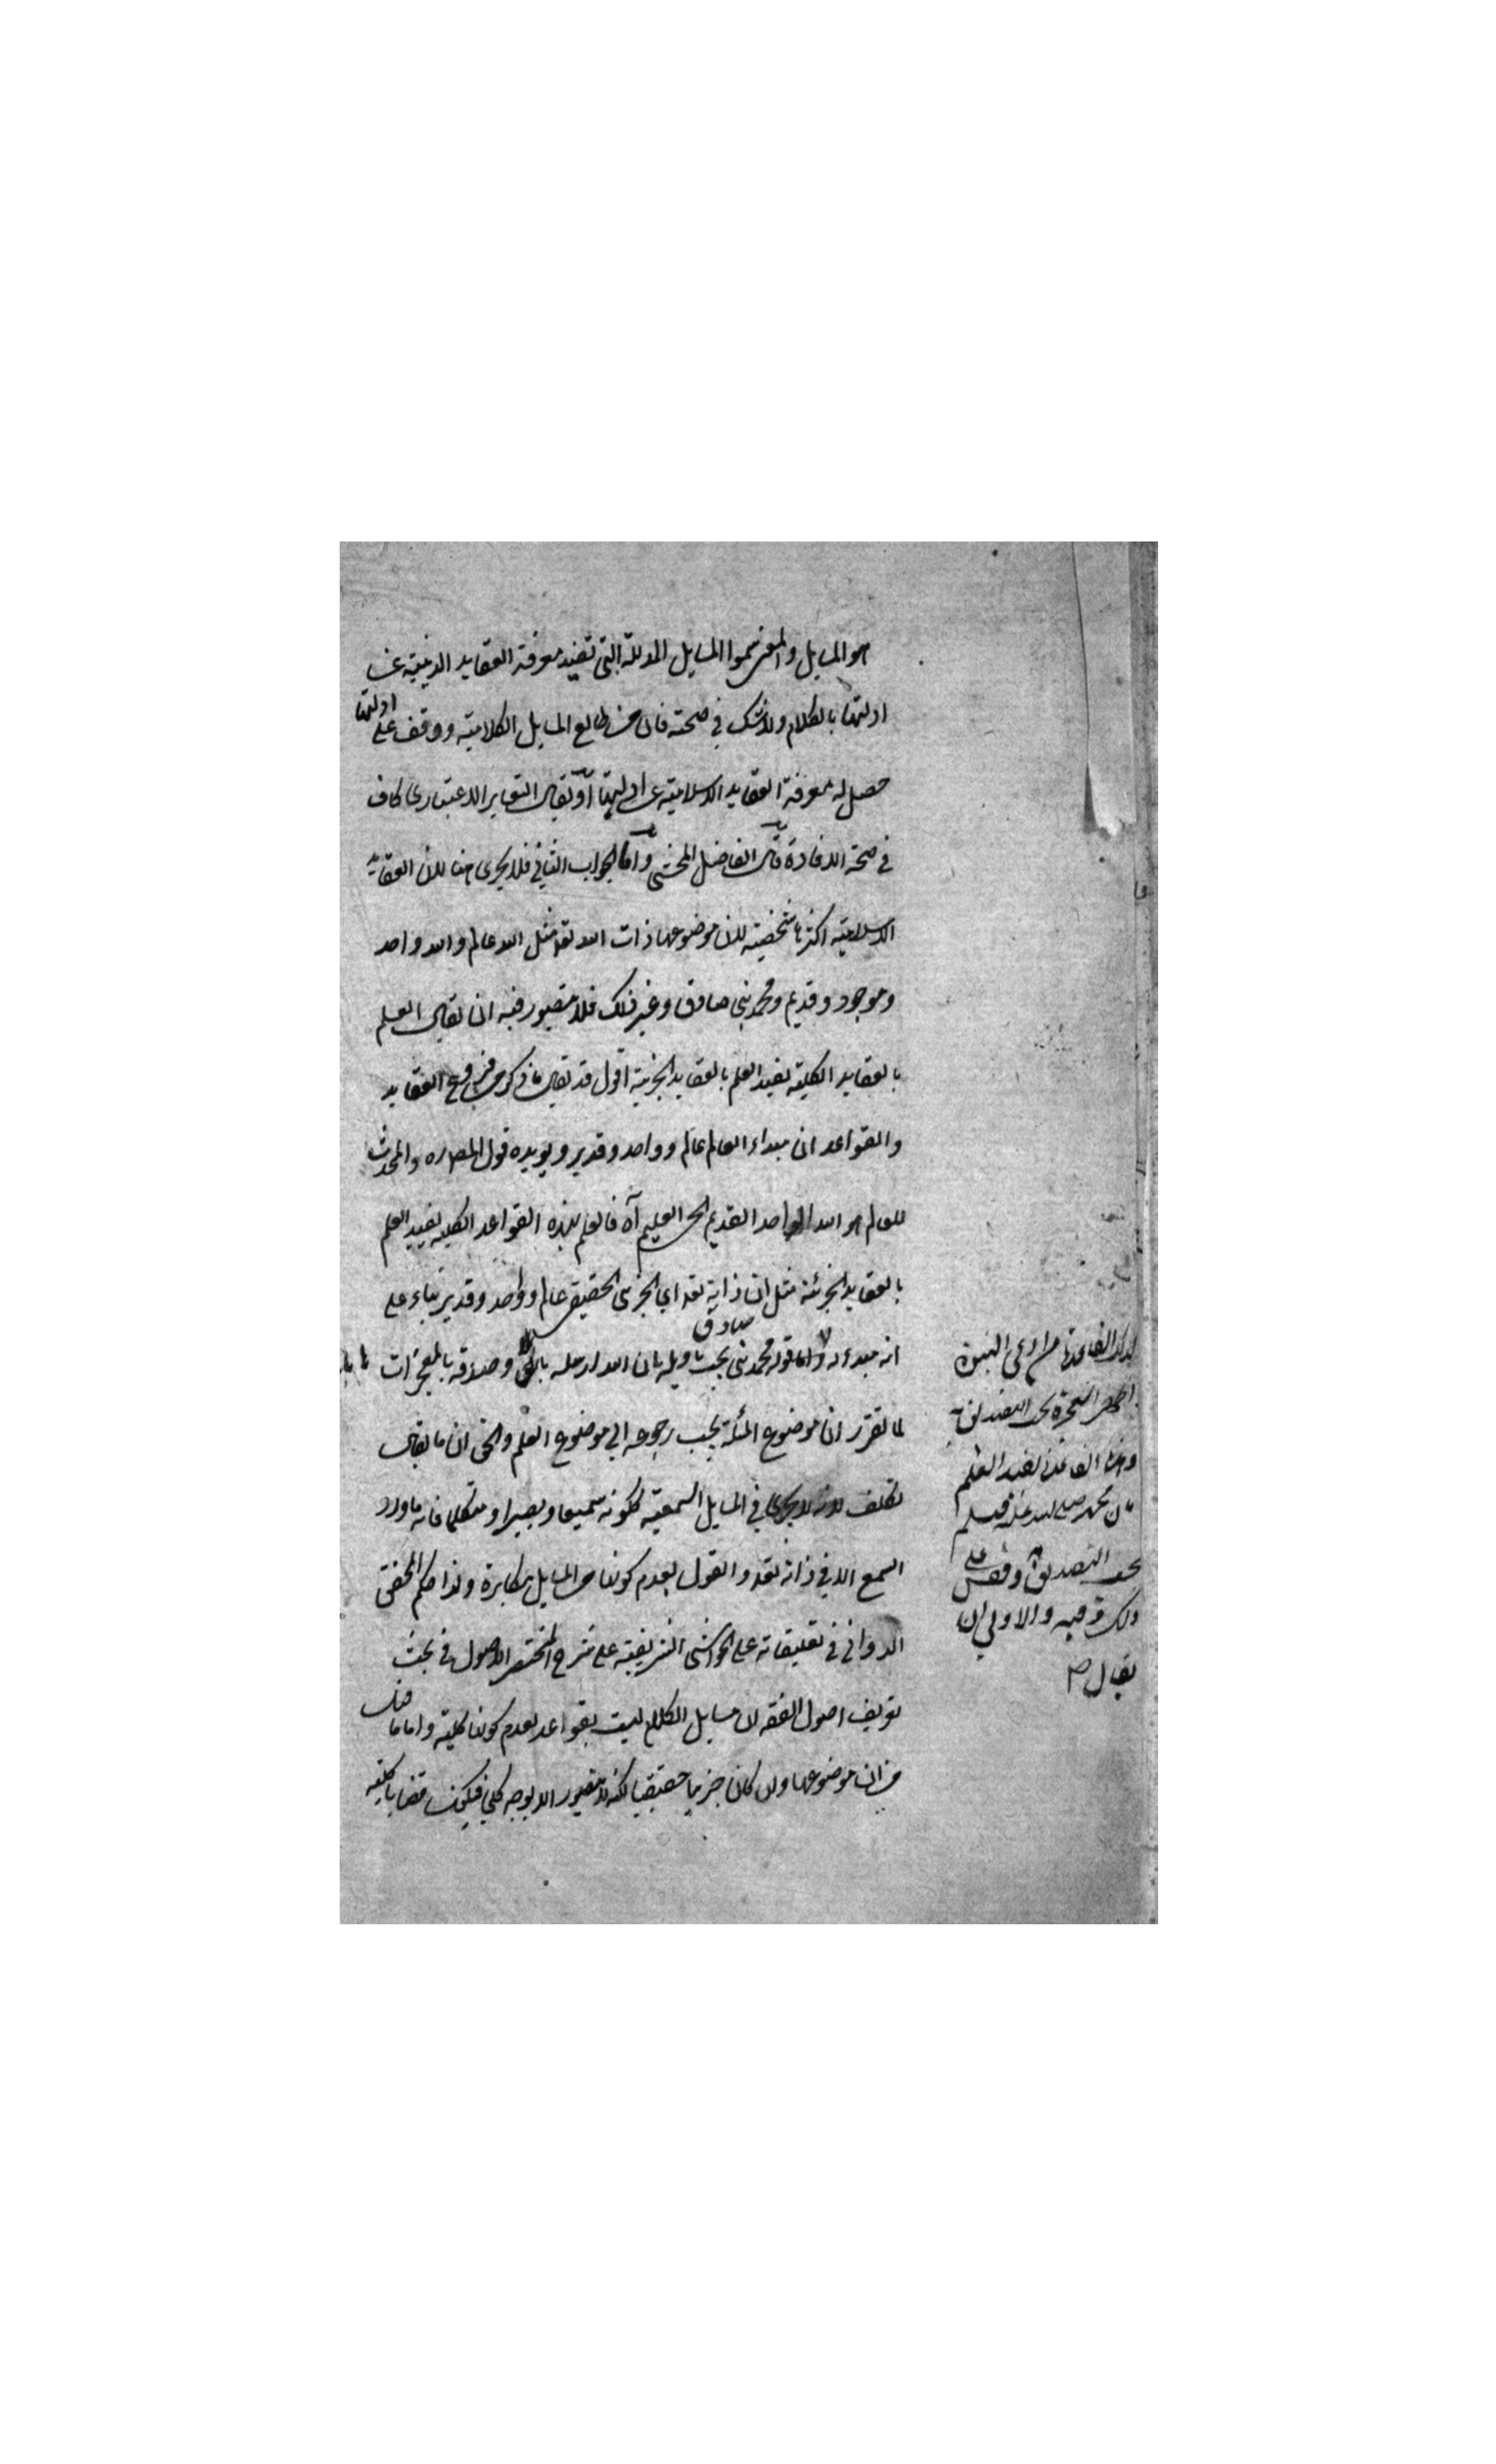 هو المسايل والمعنى سموا المسايل المدللة التي تفيد معرفة العقايد الدينية عن
ادلتها بالكلام ولا شك في صحته فان من طالع المسايل الكلامية ووقف على ادلتها
حصل له معرفة العقايد الاسلامية عن ادلتها او يقال التغاير الاعتباري كاف
في صحة الافادة قال الفاضل المحشي واما الجواب الثاني فلا يجري هنا لان العقايد
الاسلامية اكثرها شخصية لان موضوعها ذات الله تعالى مثل الله عالم والله واحد
وموجود وقديم ومحمد نبي صادق وغير ذلك فلا يتصور فيه ان يقال العلم
بالعقايد الكلية يفيد العلم بالعقايد الجزئية اقول قد يقال ما ذكر من فروع العقايد
والقواعد ان مبداء العالم عالم وواحد وقدير ويويده قول المص ره والمحدث
للعالم هو الله الواحد القديم الحي العليم آه فالعلم بهذه القواعد الكلية يفيد العلم
بالعقايد الجزئية مثل ان ذاته تعالى اي الجزئي الحقيقي عالم وواحد وقدير بناء على
انه مبدء له واما قوله محمد نبي صادق يجب تاويله بان الله ارسله بالحق وصدقه بالمعجزات
لما تقرر ان موضوع المسئلة يجب رجوعه الي موضوع العلم والحق ان ما يقال
تكلف لانه لا يجري في المسايل السمعية ككونه سميعا وبصيرا ومتكلما فانه ما ورد
السمع الا في ذاته تعالى والقول بعدم كونها من المسايل مكابرة ولذا حكم المحقق
الدواني في تعليقاته على الحواشي الشريفية على شرح المختصر الاصول في بحث
تعريف اصول الفقه ان مسايل الكلام ليست بقواعد لعدم كونها كلية واما ما قيل
من ان موضوعها وان كان جزئيا حقيقيا لكنه لا يتصور الا بوجه كلي فيكون قضايا كلية
من ادعى النبوة
يفيد العلم
بان محمد صلى الله عليه وسلم
يجب التصديق وقس على
ذلك وفيه والاولى ان
يقال